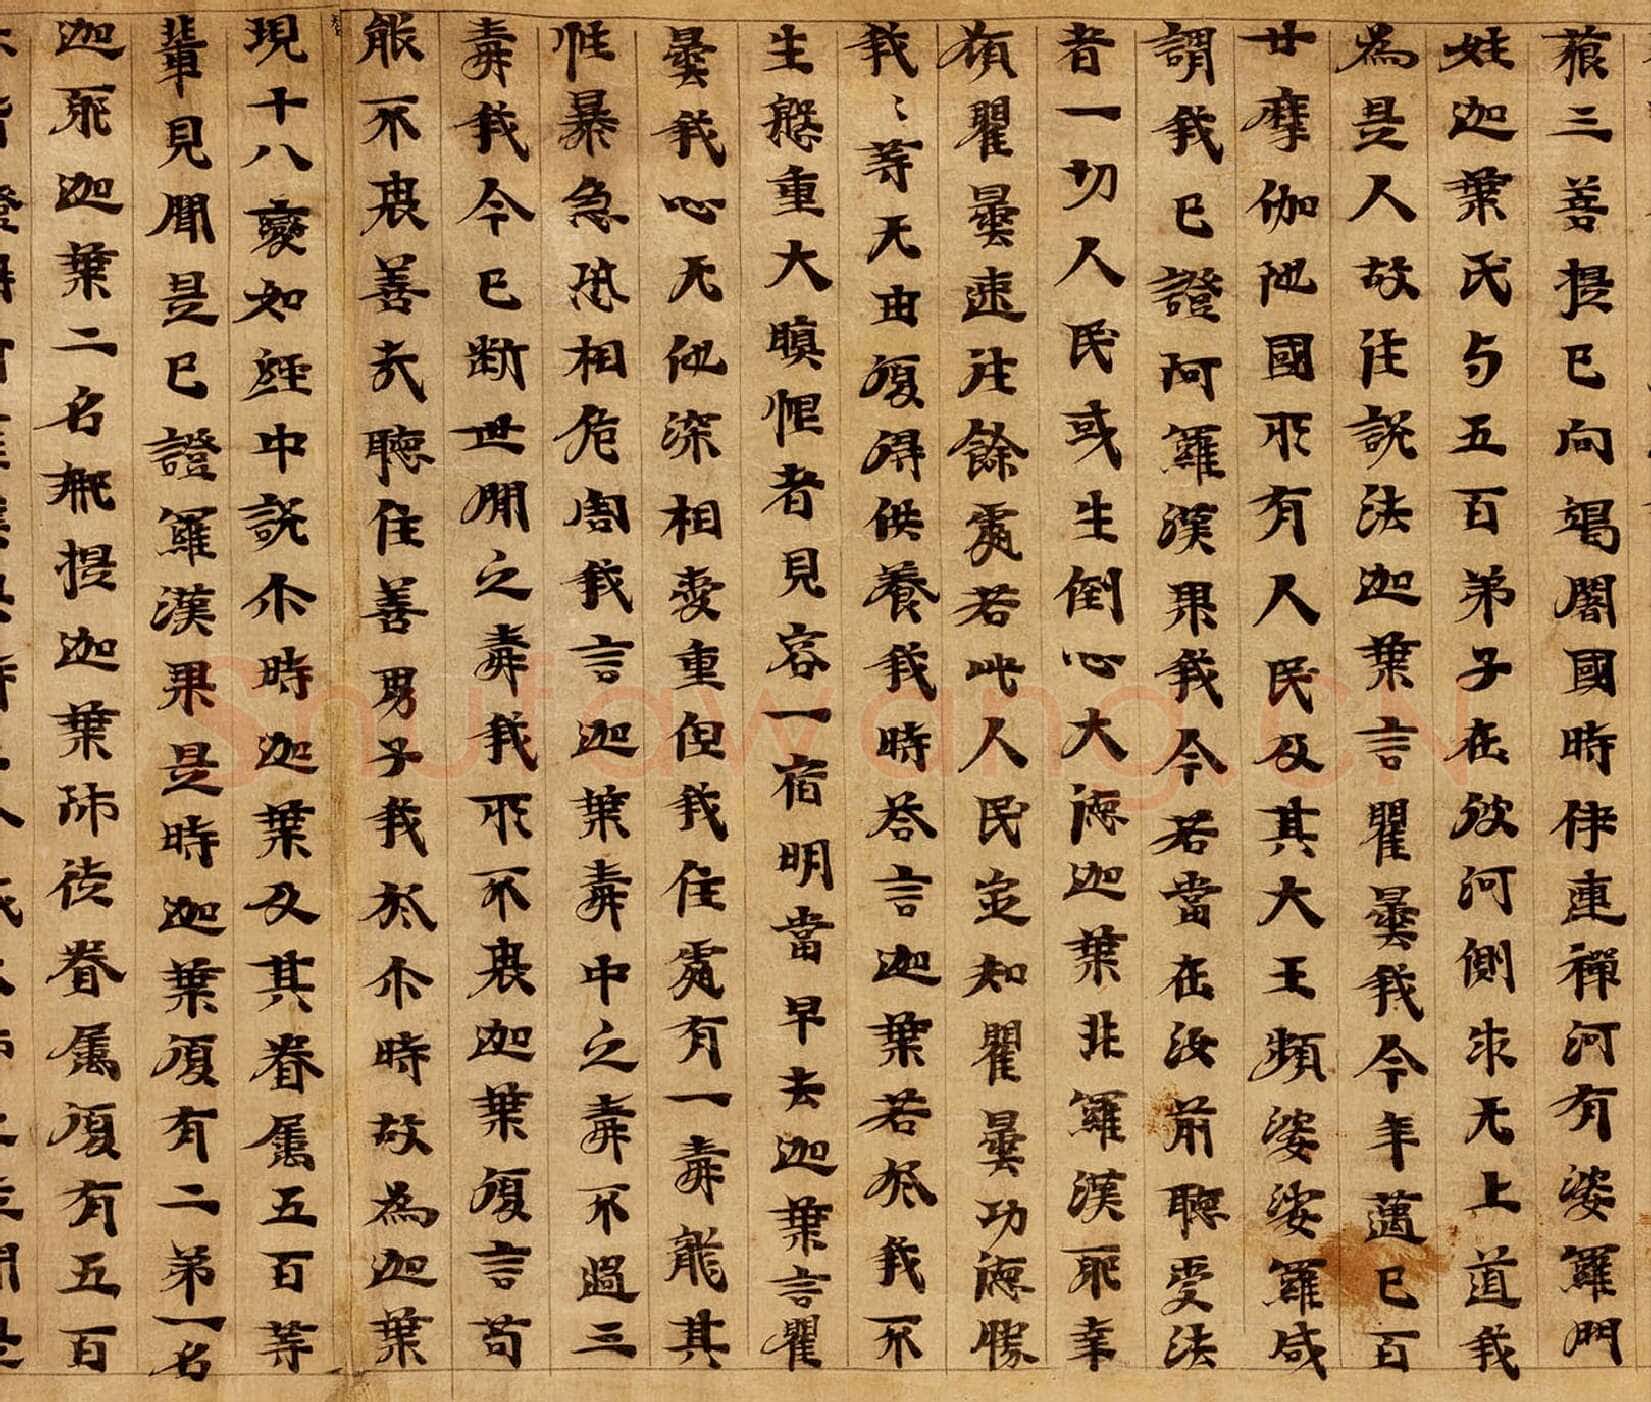 藐三菩提已向竭闍國時伊連禪河有婆羅門
姓迦葉氏与五百弟子在彼河側求无上道我
為是人故往説法迦葉言瞿曇我今年邁已百
廿摩伽陁國所有人民及其大王頻婆娑羅咸
謂我已證阿羅漢果我今若當在汝前聽受法
者一切人民或生倒心大德迦葉非羅漢耶幸
願瞿曇速往餘處若此人民定知瞿曇功德勝
我〻等无由復得供養我時答言迦葉若於我不
生慇重大瞋恨者見容一宿明當早去迦葉言瞿
曇我心无他深相愛重但我住處有一毒龍其
性暴急恐相危害我言迦葉毒中之毒不過三
毒我今已断世間之毒我所不畏迦葉復言苟
能不畏善哉聽住善男子我於尒時故為迦葉
現十八變如經中説尒時迦葉及其眷属五百等
輩見聞是已證羅漢果是時迦葉復有二弟一名
迦耶迦葉二名那提迦葉师徒眷属復有五百